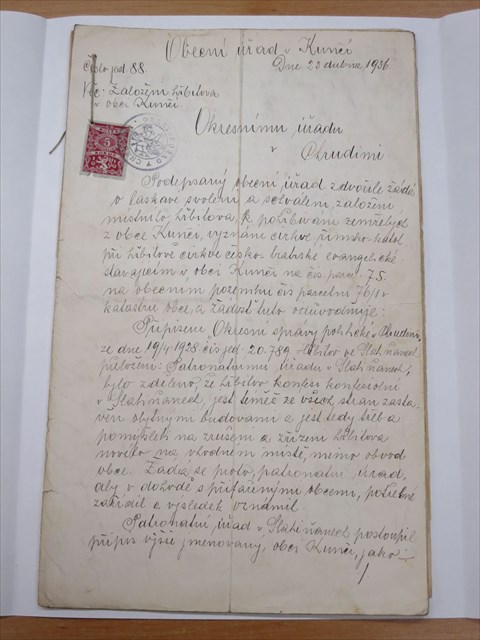 Obecní úřad v Kunčí
Číslo jed. 88.
Dne 23 dubna 1936.
Věc: Založení hřbitova
v obci Kunčí.
5
Okresnímu úřadu
v Chrudimi
Podepsaný obecní úřad zdvořile žádá
o laskavé svolení a schválení, založení
místního hřbitova, k pohřbívání zemřelých
z obce Kunčí, vyznání církve římsko-katol.
při hřbitově církve česko-bratrské evangelické
stávajícím v obci Kunčí na čís. parc. 75.
na obecním pozemku čís. parcelní 76/1 v
katastru obce, a žádost tuto odůvodňuje:
Přípisem Okresní správy politické v Chrudimi,
ze dne 19/4 1928 čís. jed. 20.789. hřbitov ve Slatiňanech
přeloženo: Patronátnímu úřadu v Slatiňanech,
bylo sděleno, že hřbitov konfesí
v Slatiňanech, jest téměř ze všech stran zasta-
věn obytnými budovami a jest tedy třeba
pomýšleti na zrušení a zřízení hřbitova
nového na vhodném místě, mimo obvod
obce. Žádá se proto, patronátní úřad,
aby v dohodě s přifařenými obcemi, potřebné
zařídil a výsledek oznámil.
Patronátní úřad v Slatiňanech postoupil
přípis výše jmenovaný, obci Kunčí, jako